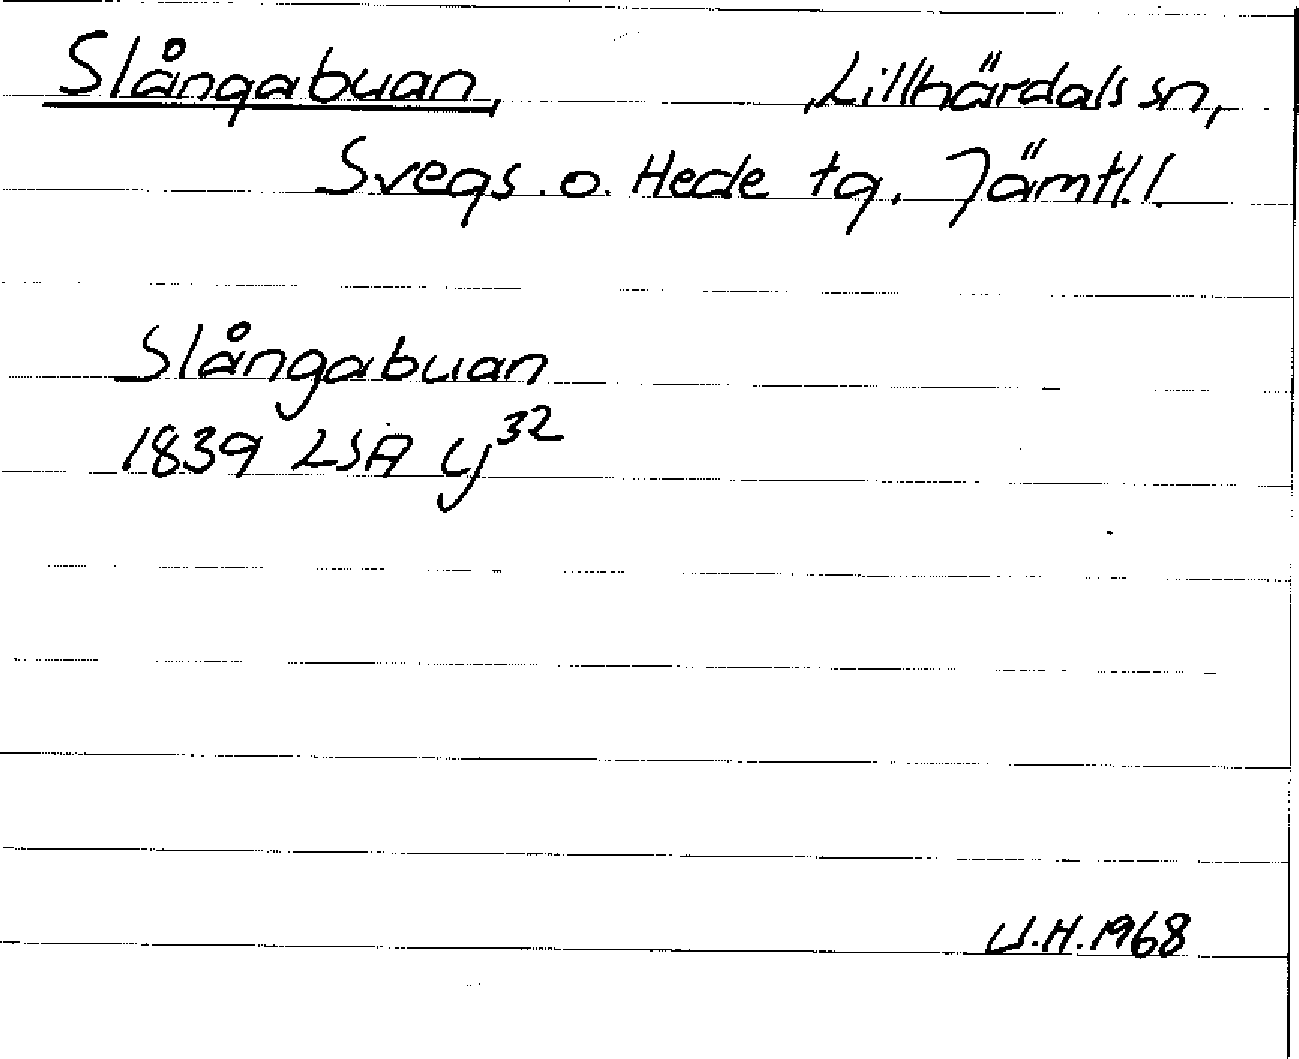 Slångabuan, Lillhärdals sn,
Svegs o. Hede tg, Jämtl. l.
Slångabuan
1839 LSA y32
U.H. 1968